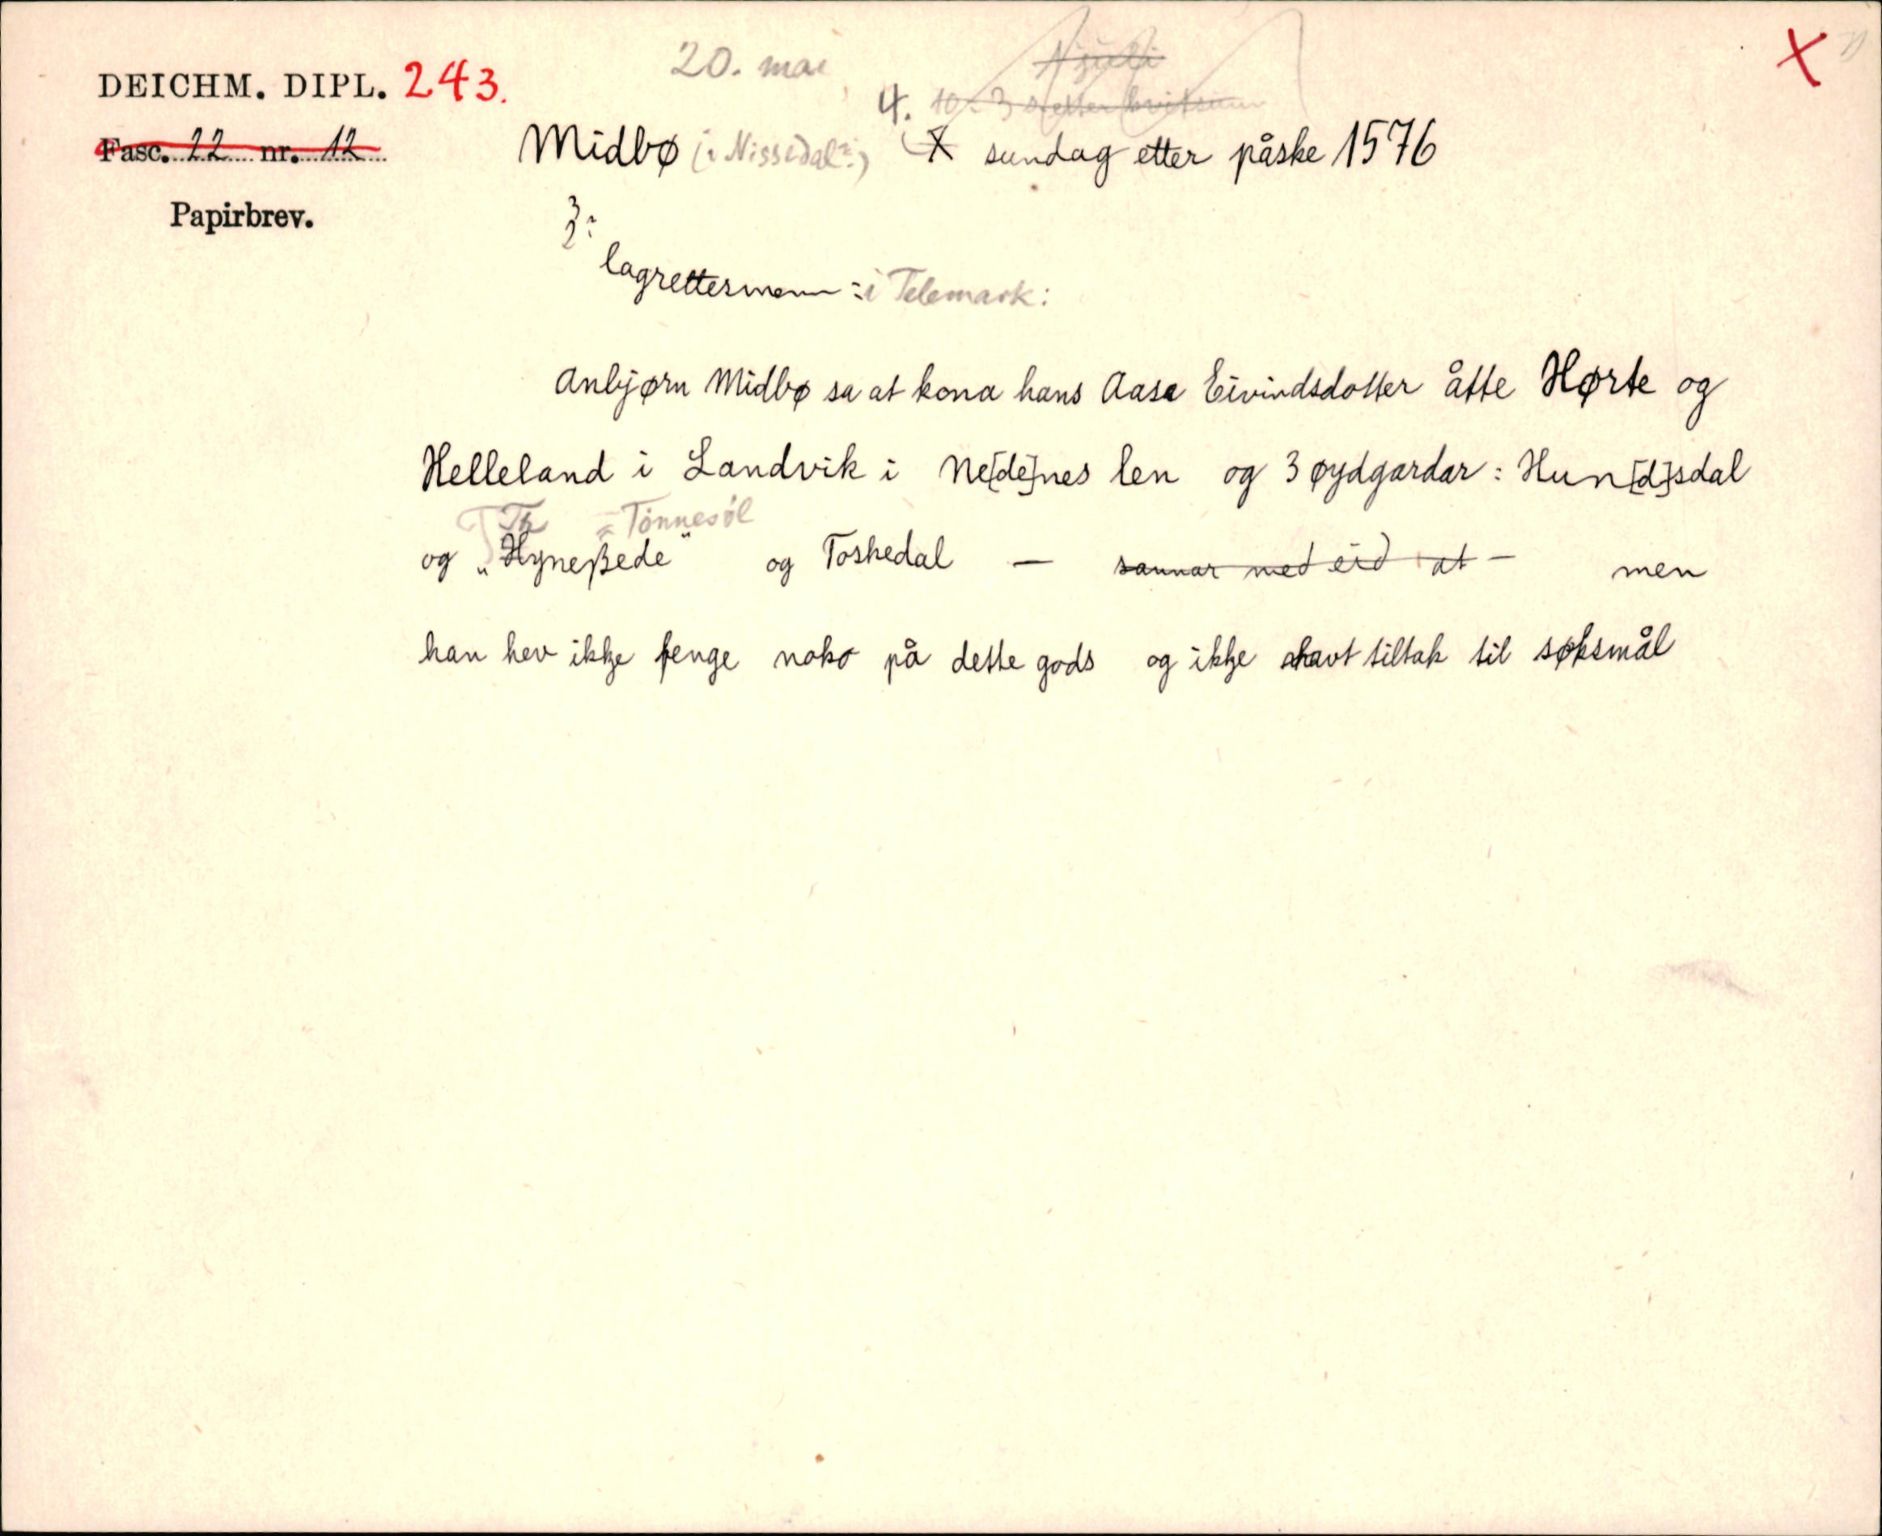 20. mai
1 juli
DEICHM. DIPL. 243.
4. 10. 3 s. etter kvitsunn
Fasc. 22 nr. 12 Midbø (i Nissedal?) X sundag etter påske 1576
Papirbrev.
3:
lagrettesmenn: i Telemark:
Anbjørn Midbø sa at kona hans Aase Eivindsdotter åtte Hørte og
Helleland i Landvik i Ne[de]nes len og 3 øydgardar: Hun[d]sdal
Th = Tønnesøl
og „Hyneßede" og Toskedal — sannar med eid at — men
han hev ikkje fenge noko på dette gods og ikkje havt tiltak til søksmål